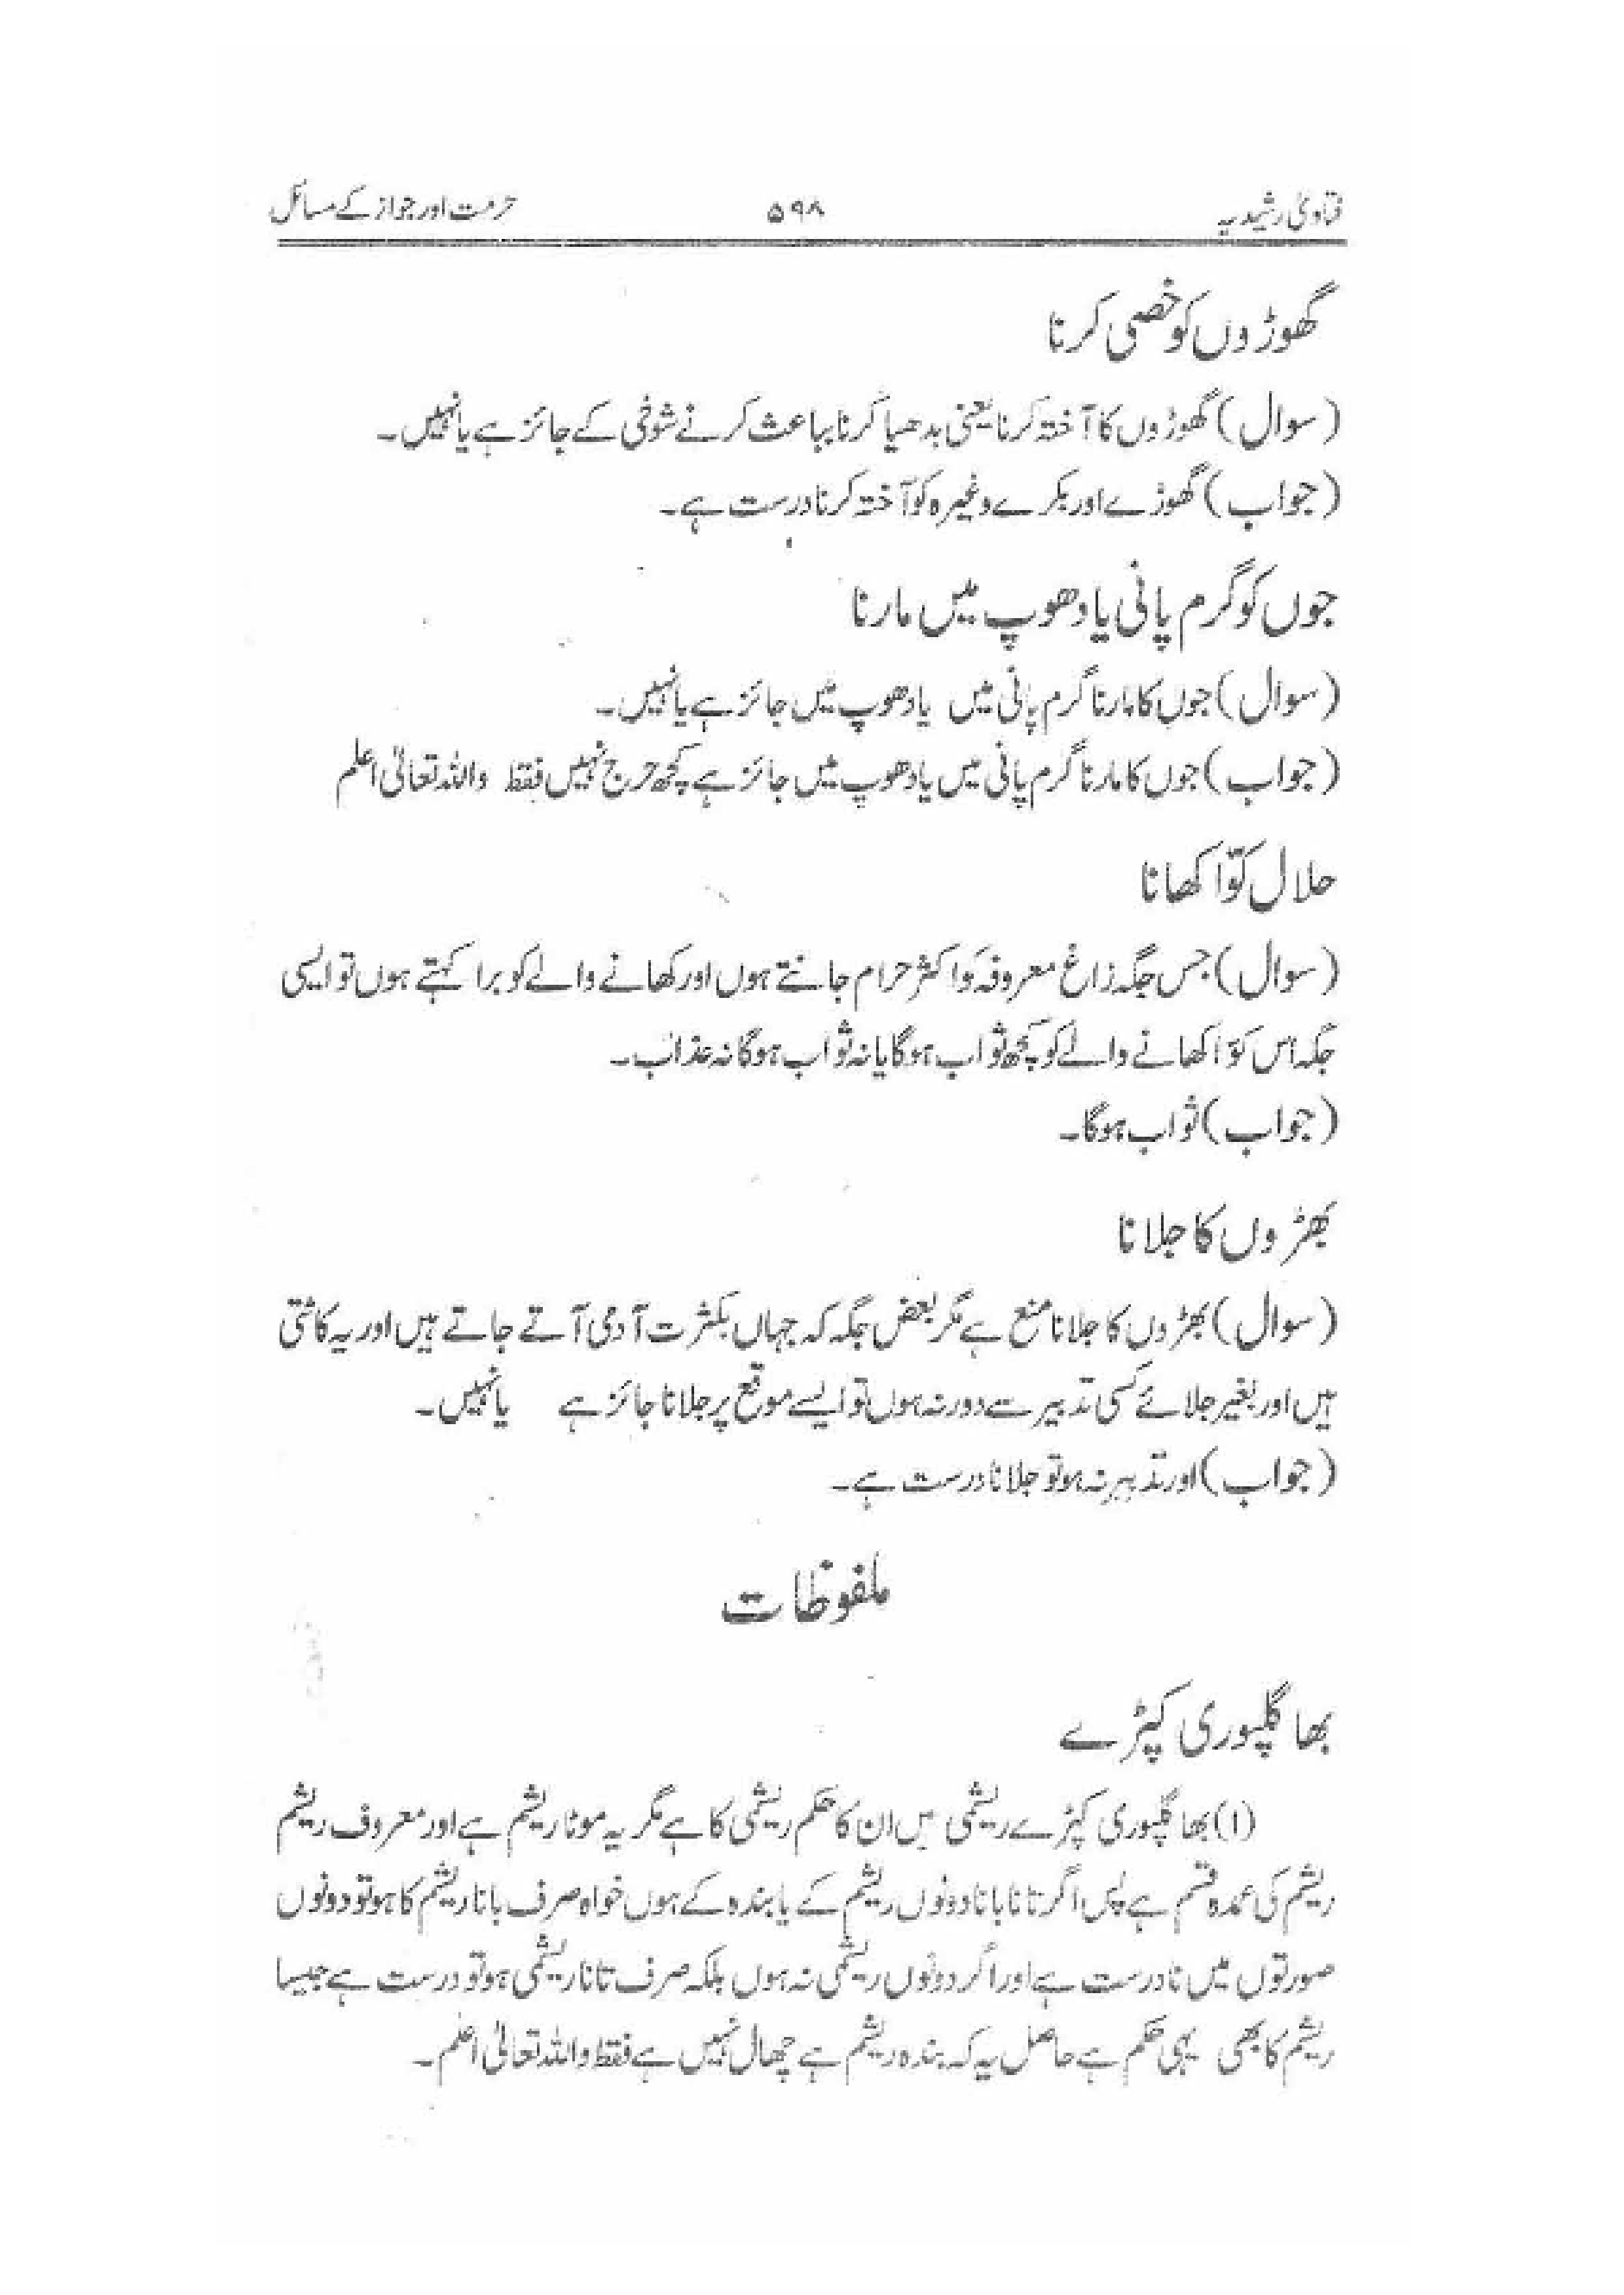 فتاویٰ رشیدیہ ۵۹۸ حرمت اور جواز کے مسائل
گھوڑوں کو خصی کرنا
(سوال) گھوڑوں کا آختہ کرنا یعنی بدھیا کرنا بباعث کرنے شوخی کے جائز ہے یا نہیں۔
(جواب) گھوڑے اور بکرے وغیرہ کو آختہ کرنا درست ہے۔
جوں کو گرم پانی یا دھوپ میں مارنا
(سوال) جوں کا مارنا گرم پانی میں یا دھوپ میں جائز ہے یا نہیں۔
(جواب) جوں کا مارنا گرم پانی میں یا دھوپ میں جائز ہے کچھ حرج نہیں فقط واللہ تعالیٰ اعلم
حلال کوّا کھانا
(سوال) جس جگہ زاغ معروفہ کو اکثر حرام جانتے ہوں اور کھانے والے کو برا کہتے ہوں تو ایسی
جگہ اس کوّا کھانے والے کو کچھ ثواب ہوگا یا نہ ثواب ہوگا نہ عذاب۔
(جواب) ثواب ہوگا۔
بھڑوں کا جلانا
(سوال) بھڑوں کا جلانا منع ہے مگر بعض جگہ کہ جہاں بکثرت آدمی آتے جاتے ہیں اور یہ کاٹتی
ہیں اور بغیر جلائے کسی تدبیر سے دور نہ ہوں تو ایسے موقع پر جلانا جائز ہے یا نہیں۔
(جواب) اور تدبیر نہ ہو تو جلانا درست ہے۔
ملفوظات
بھاگلپوری کپڑے
(۱) بھاگلپوری کپڑے ریشمی ہیں ان کا حکم ریشمی کا ہے مگر یہ موٹا ریشم ہے اور معروف ریشم
ریشم کی عمدہ قسم ہے پس اگر تانا بانا دونوں ریشم کے یا بندہ کے ہوں خواہ صرف بانا ریشم کا ہو تو دونوں
صورتوں میں نادرست ہے اور اگر دونوں ریشمی نہ ہوں بلکہ صرف تانا ریشمی ہو تو درست ہے جیسا
ریشم کا بھی یہی حکم ہے حاصل یہ کہ بندہ ریشم ہے چھال نہیں ہے فقط واللہ تعالیٰ اعلم۔